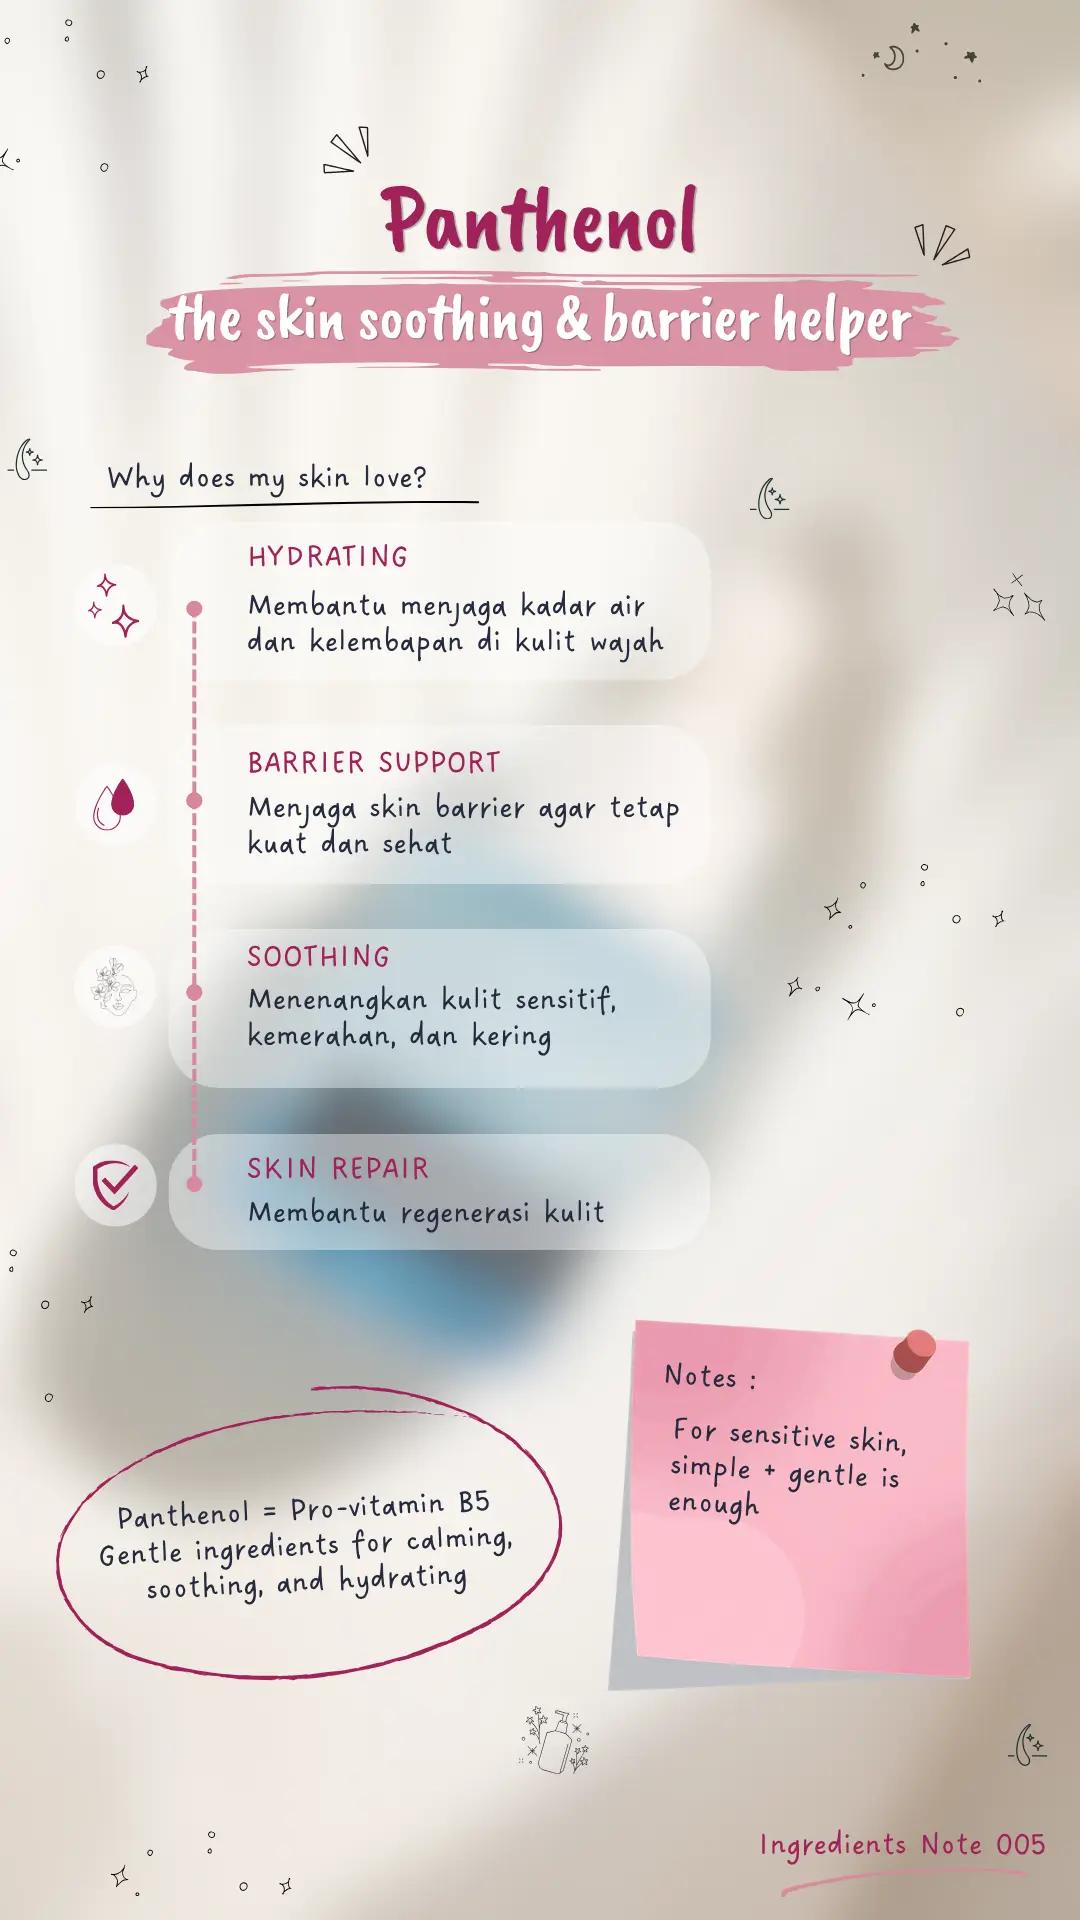 Panthenol
the skin soothing & barrier helper
Why does my skin love?
HYDRATING
Membantu menjaga kadar air
dan kelembapan di kulit wajah
BARRIER SUPPORT
Menjaga skin barrier agar tetap
kuat dan sehat
SOOTHING
Menenangkan kulit sensitif,
kemerahan, dan kering
SKIN REPAIR
Membantu regenerasi kulit
Notes :
For sensitive skin,
simple + gentle is
enough
Panthenol = Pro-vitamin B5
Gentle ingredients for calming,
soothing, and hydrating
Ingredients Note 005